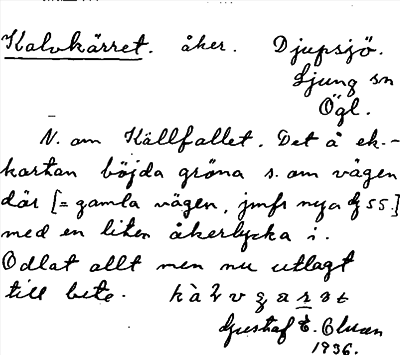 Kalvkärret. åker. Djupsjö.
Ljung sn
Ögl.
N. om Källfallet. Det å ek.-
kartan böjda gröna s. om vägen
där [= gamla vägen, jmfr nya
med en liten åkerlycka i.
Odlat allt men nu utlagt
till bete.
Gustaf E.
1936.